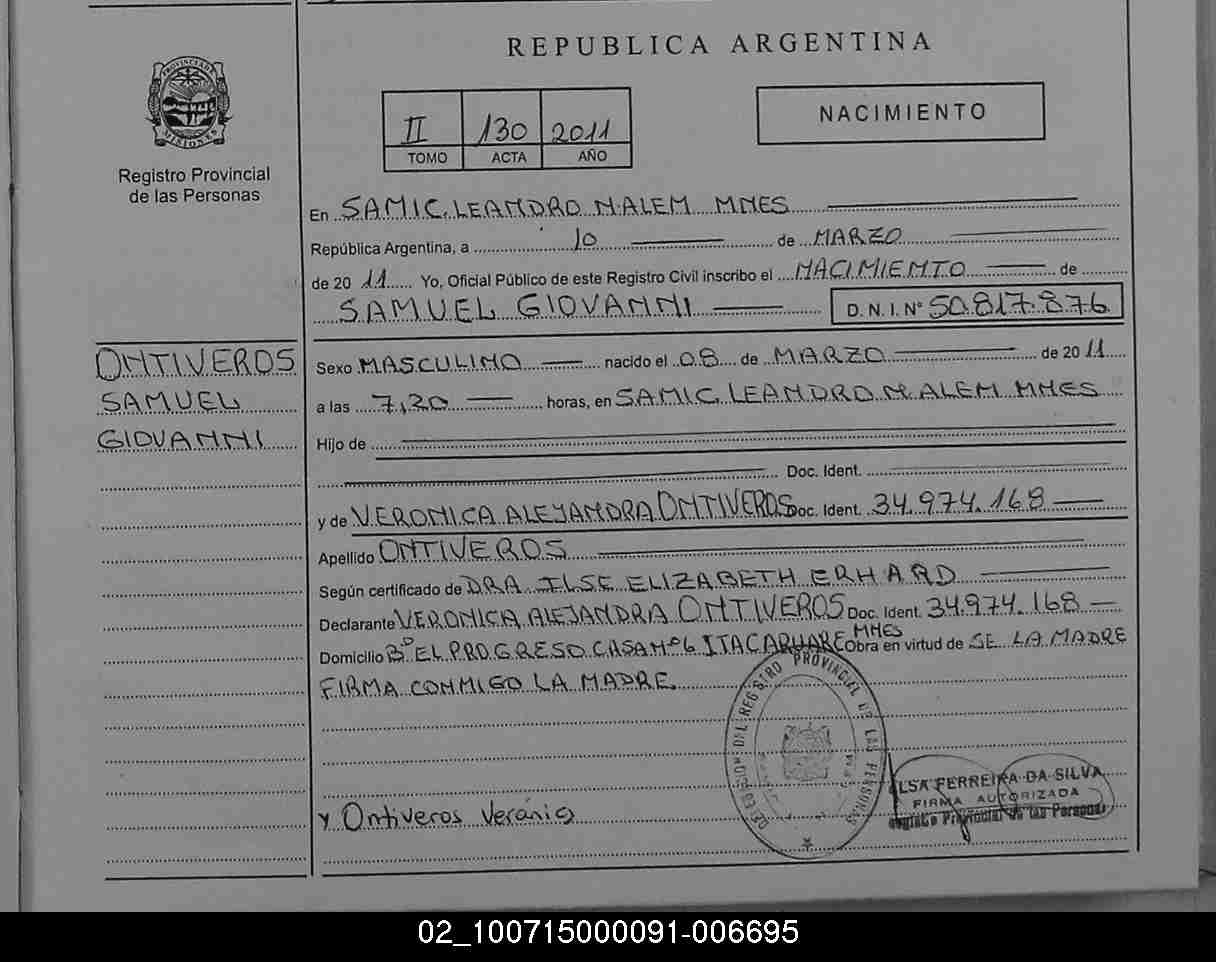 REPUBLICA ARGENTINA
PROVINCIA DE MISIONES
Registro Provincial
de las Personas
II 130 2011
TOMO ACTA AÑO
NACIMIENTO
En SAMIC. LEANDRO N. ALEM MNES
República Argentina, a 10 de MARZO
de 2011 Yo, Oficial Público de este Registro Civil inscribo el NACIMIENTO de
SAMUEL GIOVANNI D.N.I. Nº 50.817.876
ONTIVEROS
SAMUEL
GIOVANNI
Sexo MASCULINO nacido el 08 de MARZO de 2011
a las 7,20 horas, en SAMIC. LEANDRO N. ALEM MNES
Hijo de
Doc. Ident.
y de VERONICA ALEJANDRA ONTIVEROS Doc. Ident. 34.974.168
Apellido ONTIVEROS
Según certificado de DRA ILSE ELIZABETH ERHARD
Declarante VERONICA ALEJANDRA ONTIVEROS Doc. Ident. 34.974.168
Domicilio Bº EL PROGRESO CASA Nº6 ITACARUARE MNES Obra en virtud de SE LA MADRE
FIRMA CONMIGO LA MADRE
DEL REGISTRO PROVINCIAL DE LAS PERSONAS
ELSA FERREIRA DA SILVA
FIRMA AUTORIZADA
Registro Provincial de las Personas
y Ontiveros Verónica
02_100715000091-006695